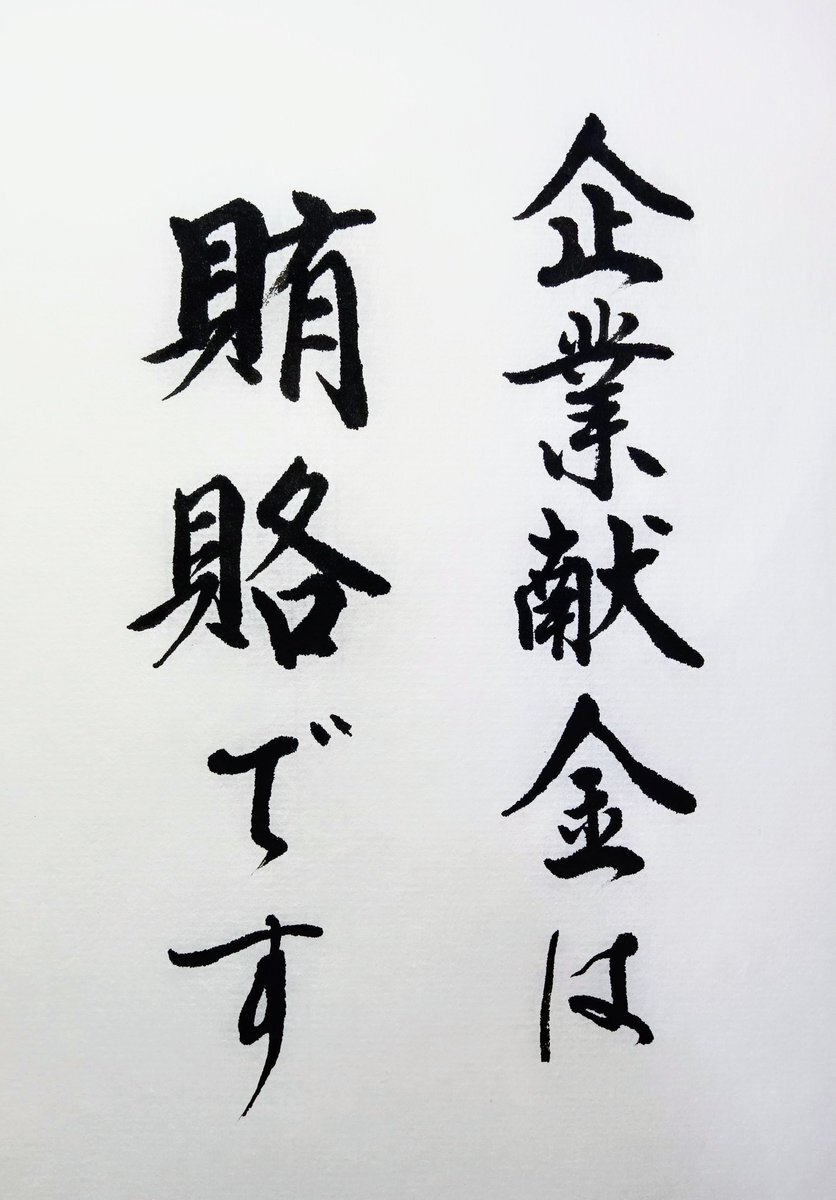 企業献金は
賄賂です